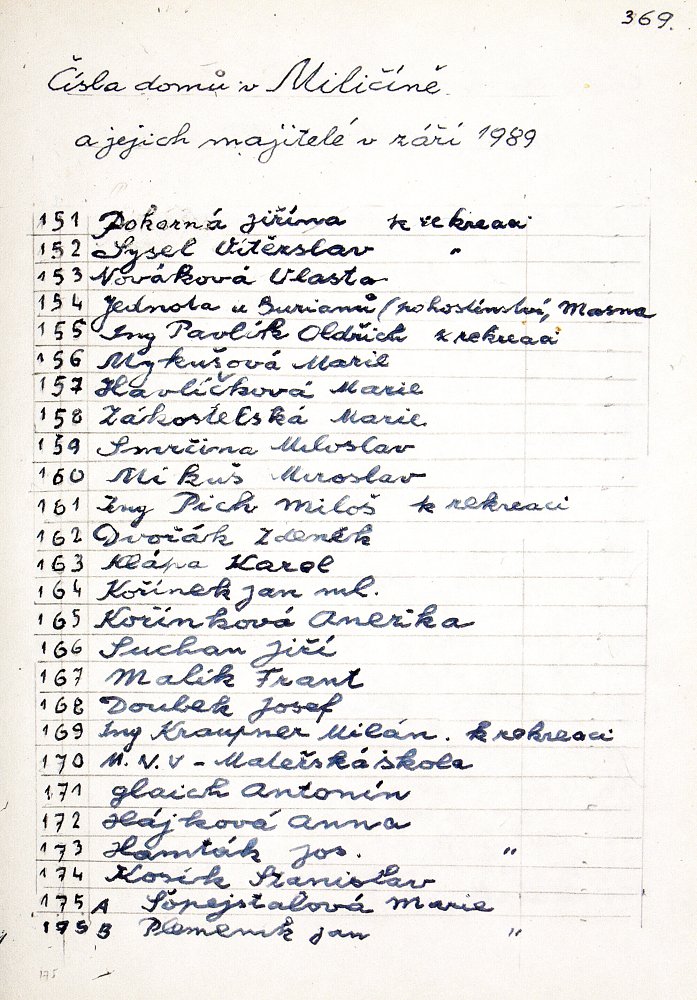 369.
Čísla domů v Miličíně
a jejich majitelé v září 1989
151 Pokorná Jiřina k rekreaci
152 Sysel Vítěrslav "
153 Nováková Vlasta
154 Jednota u Burianů (pohostinství, Masna
155 Ing Pavlík Oldřich k rekreaci
156 Mykušová Marie
157 Havlíčková Marie
158 Zákostelská Marie
159 Smrčina Miloslav
160 Mikuš Miroslav
161 Ing Pich Miloš k rekreaci
162 Dvořák Zdeněk
163 Klápa Karel
164 Kořínek Jan ml.
165 Kořínková Anerika
166 Suchan Jiří
167 Malík Frant
168 Doubek Josef
169 Ing Kraupner Milán. k rekreaci
170 M.N.V - Mateřská škola
171 Glaich Antonín
172 Hájková Anna
173 Hamták Jos. "
174 Kosík Stanislav
175 A Šopejstalová Marie
175 B Plemeník Jan "
175